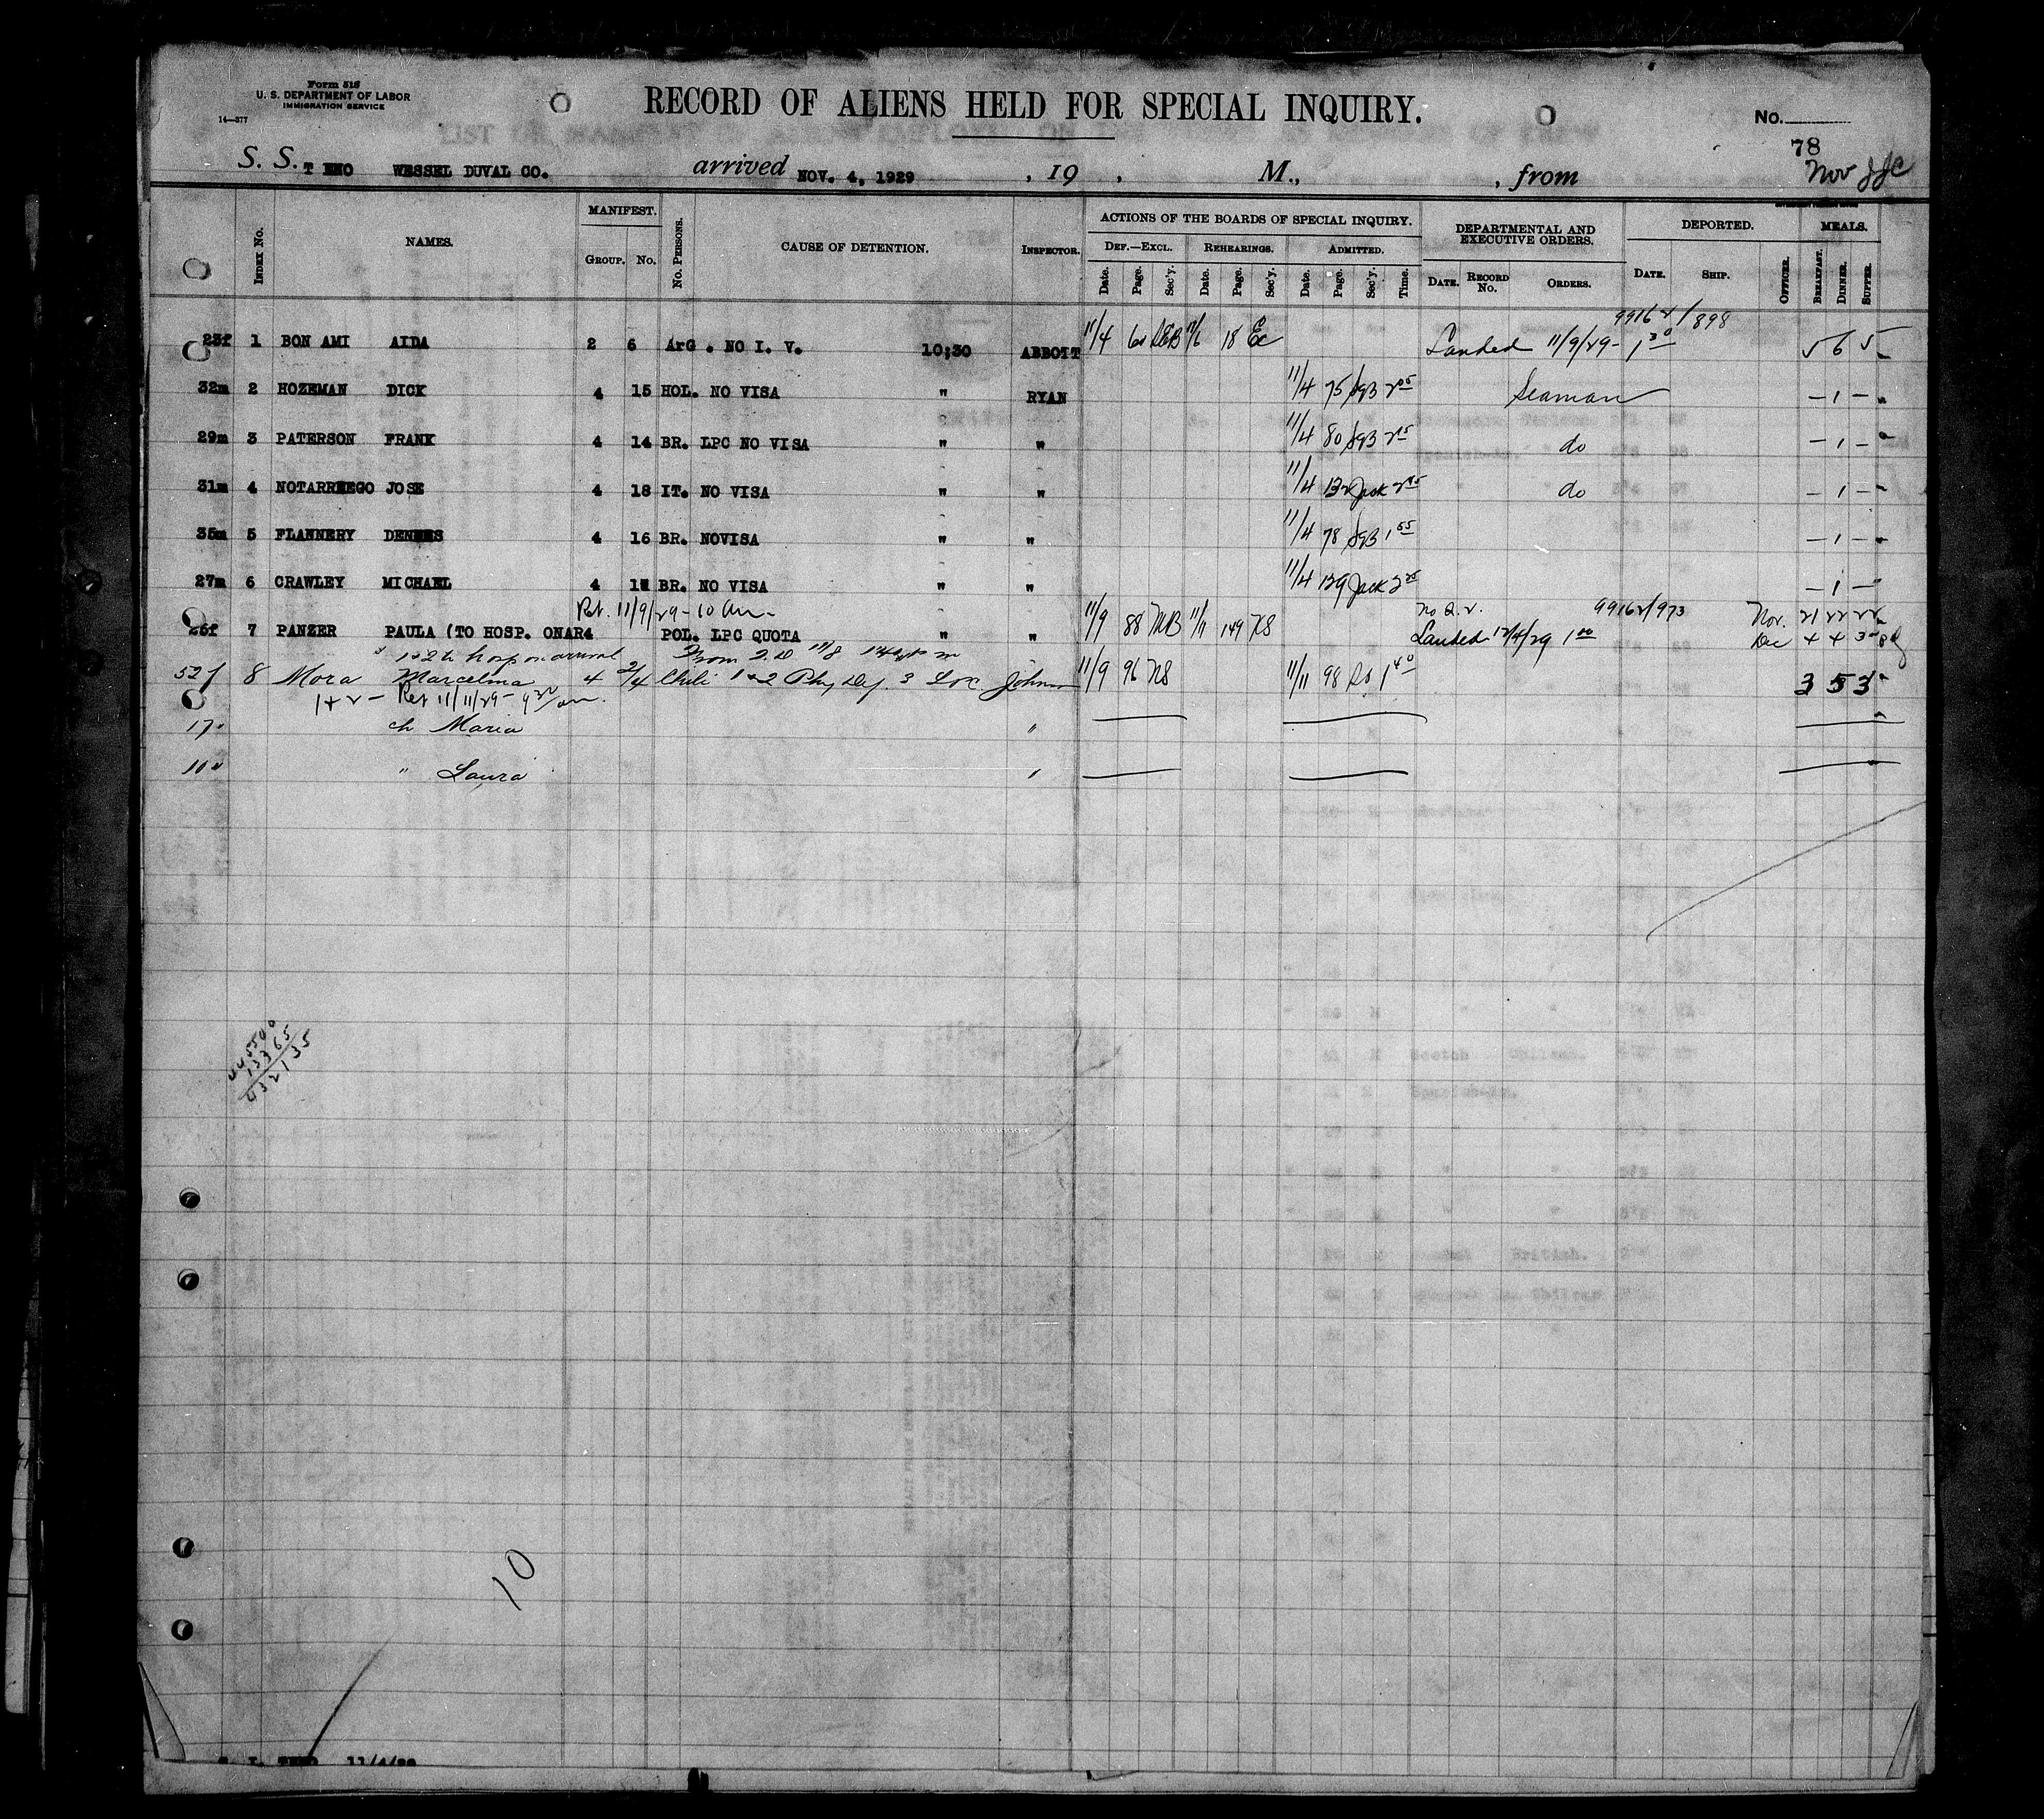 Form 518
U. S. DEPARTMENT OF LABOR
IMMIGRATION SERVICE
14—377
RECORD OF ALIENS HELD FOR SPECIAL INQUIRY.
No.
78
S. S. T ENO WESSEL DUVAL CO. arrived NOV. 4, 1929 , 19 , M., , from Nov JJC
INDEX No. NAMES. MANIFEST. GROUP. No. No. PERSONS. CAUSE OF DETENTION. INSPECTOR. ACTIONS OF THE BOARDS OF SPECIAL INQUIRY. DEF.—EXCL. Date. Page. Sec'y. REHEARINGS. Date. Page. Sec'y. ADMITTED. Date. Page. Sec'y. Time. DEPARTMENTAL AND EXECUTIVE ORDERS. DATE. RECORD No. ORDERS. DEPORTED. DATE. SHIP. OFFICER. MEALS. BREAKFAST. DINNER. SUPPER.
99162/898
23f 1 BON AMI AIDA 2 6 ArG . NO I. V. 10;30 ABBOTT 11/4 11/6 18 Ec Landed 11/9/29- 1 30 5 6 5
32m 2 HOZEMAN DICK 4 15 HOL. NO VISA " RYAN 11/4 75 Seaman — 1 —
29m 3 PATERSON FRANK 4 14 BR. LPC NO VISA " " 11/4 80 do — 1 —
31m 4 NOTARREEGO JOSE 4 18 IT. NO VISA " " 11/4 132 Jack do — 1 —
35m 5 FLANNERY 4 16 BR. NOVISA " " 11/4 78 1 55 — 1 —
27m 6 CRAWLEY MICHAEL 4 BR. NO VISA " " 11/4 129 Jack — 1 —
Ret. 11/9/29-10 am- 99162/973
26f 7 PANZER PAULA (TO HOSP. ONAR4 POL. LPC QUOTA " " 11/9 88 MB 11/11 149 NS Landed 12/4/29 1 00 Nov. 21 22 22 Dec 4 4 3
1&2 to hosp on arrival
52f 8 Mora Marcelina 4 2/4 Chili 1&2 Phy Def. 3 LPC Johnson 11/9 96 NS 11/11 98 1 40 3 5 3
1 + 2 - Ret 11/11/29- 9 30 am.
17" ch Maria "
10" " Laura "
445500
13365
432135
10
11/4/29